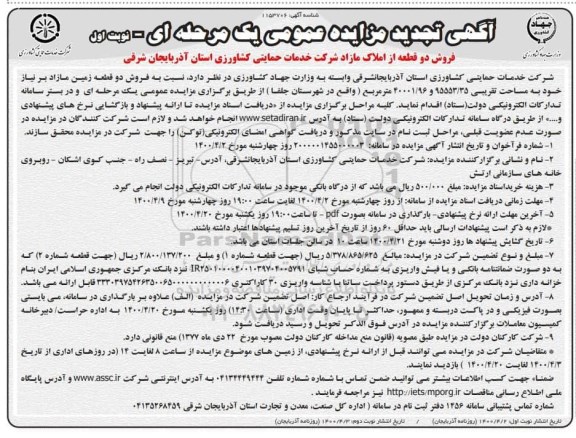 شناسه آگهی: ۱۱۵۳۷۰۶
آگهی تجدید مزایده عمومی یک مرحله ای - نوبت اول
فروش دو قطعه از املاک مازاد شرکت خدمات حمایتی کشاورزی استان آذربایجان شرقی
شرکت خدمات حمایتی کشاورزی استان آذربایجانشرقی وابسته به وزارت جهاد کشاورزی در نظر دارد، نسبت به فروش دو قطعه زمین مازاد بر نیاز
خود به مساحت تقریبی ۹۵۵۵۳/۳۵ و ۴۰۰۰۱/۹۶ مترمربع ( واقع در شهرستان جلفا ) از طریق برگزاری مزایده عمومی یک مرحله ای و در بستر سامانه
تدارکات الکترونیکی دولت(ستاد) اقدام نماید. کلیه مراحل برگزاری مزایده از «دریافت اسناد مزایده تا ارائه پیشنهاد و بازگشایی نرخ های پیشنهادی
و....» از طریق درگاه سامانه تدارکات الکترونیکی دولت(ستاد) به آدرس www.setadiran.ir انجام خواهد شد و لازم است شرکت کنندگان در مزایده در
صورت عدم عضویت قبلی، مراحل ثبت نام در سایت مذکور و دریافت گواهی امضای الکترونیکی(توکن) را جهت شرکت در مزایده محقق سازند.
۱- شماره فراخوان و تاریخ انتشار آگهی مزایده در سامانه: ۲۰۰۰۰۰۱۴۵۵۰۰۰۰۰۳ روز چهارشنبه مورخ ۱۴۰۰/۴/۲
۲- نام و نشانی برگزارکننده مزایده: شرکت خدمات حمایتی کشاورزی استان آذربایجانشرقی، آدرس- تبریز - نصف راه - جنب کوی اشکان - روبروی
خانه های سازمانی ارتش
۳- هزینه خریداسناد مزایده: مبلغ ۵۰۰/۰۰۰ ریال می باشد که از درگاه بانکی موجود در سامانه تدارکات الکترونیکی دولت انجام می گیرد.
۴- مهلت زمانی دریافت اسناد مزایده از سامانه: از روز چهارشنبه مورخ ۱۴۰۰/۴/۲ لغایت ساعت ۱۹:۰۰ روز چهارشنبه مورخ ۱۴۰۰/۴/۹
۵- آخرین مهلت ارائه نرخ پیشنهادی- بارگذاری در سامانه بصورت pdf - تا ساعت ۱۹:۰۰ روز یکشنبه مورخ ۱۴۰۰/۴/۲۰
*لازم به ذکر است پیشنهادات ارسالی باید حداقل ۶۰ روز از تاریخ آخرین روز تسلیم پیشنهادها اعتبار داشته باشند.
۶- تاریخ گشایش پیشنهاد ها روز دوشنبه مورخ ۱۴۰۰/۴/۲۱ ساعت ۱۰ در سالن جلسات استان می باشد.
۷- مبلغ و نوع تضمین شرکت در مزایده: مبالغ ۵/۳۷۸/۸۶۵/۶۲۵ ریال (جهت قطعه شماره ۱) و مبلغ ۲/۸۰۰/۱۳۷/۲۰۰ ریال (جهت قطعه شماره ۲) که
به دو صورت ضمانتنامه بانکی و یا فیش واریزی به شماره حساب شبای نزد بانک مرکزی جمهوری اسلامی ایران بنام
خزانه داری نزد بانک مرکزی از طریق دستور پرداخت ساتنا با شناسه واریزی ۳۰ کاراکتری قابل ارائه می باشد.
۸- آدرس و زمان تحویل اصل تضمین شرکت در فرآیند ارجاع کار: اصل تضمین شرکت در مزایده (الف) علاوه بر بارگذاری در سامانه، می بایستی
بصورت فیزیکی و در پاکت دربسته و ممهور، حداکثر تا پایان وقت اداری (ساعت ۱۴:۳۰) روز یکشنبه مورخ ۱۴۰۰/۴/۲۰ به اداره حراست/ دبیرخانه
کمیسیون معاملات برگزارکننده مزایده در آدرس فوق الذکر تحویل و رسید دریافت شود.
۹- شرکت کارکنان دولت در مزایده طبق مصوبه (قانون منع مداخله کارکنان دولت مصوب مورخ ۲۲ دی ماه ۱۳۳۷) منع قانونی دارد.
* متقاضیان شرکت در مزایده می توانند قبل از ارائه نرخ پیشنهادی، از زمین های موضوع مزایده از ساعت ۸ لغایت ۱۴ (در روزهای اداری از تاریخ
۱۴۰۰/۴/۳ لغایت ۱۴۰۰/۴/۲۰ ) بازدید نمایند.
ضمناً، جهت کسب اطلاعات بیشتر می توانید ضمن تماس با شماره تلفن ۰۴۱۳۴۴۴۹۴۴۳ به آدرس اینترنتی شرکت www.assc.ir و آدرس پایگاه
ملی اطلاع رسانی مناقصات http://iets/mporg.ir نیز مراجعه فرمایند .
شماره تماس پشتیبانی سامانه ۱۴۵۶ دفتر ثبت نام در سامانه ( اداره کل صنعت، معدن و تجارت استان آذربایجان شرقی ۰۴۱۳۵۲۶۸۴۵۹
تاریخ انتشار نوبت اول: ۱۴۰۰/۴/۲ (روزنامه آذربایجان) / تاریخ انتشار نوبت دوم: ۱۴۰۰/۴/۳ (روزنامه آذربایجان)